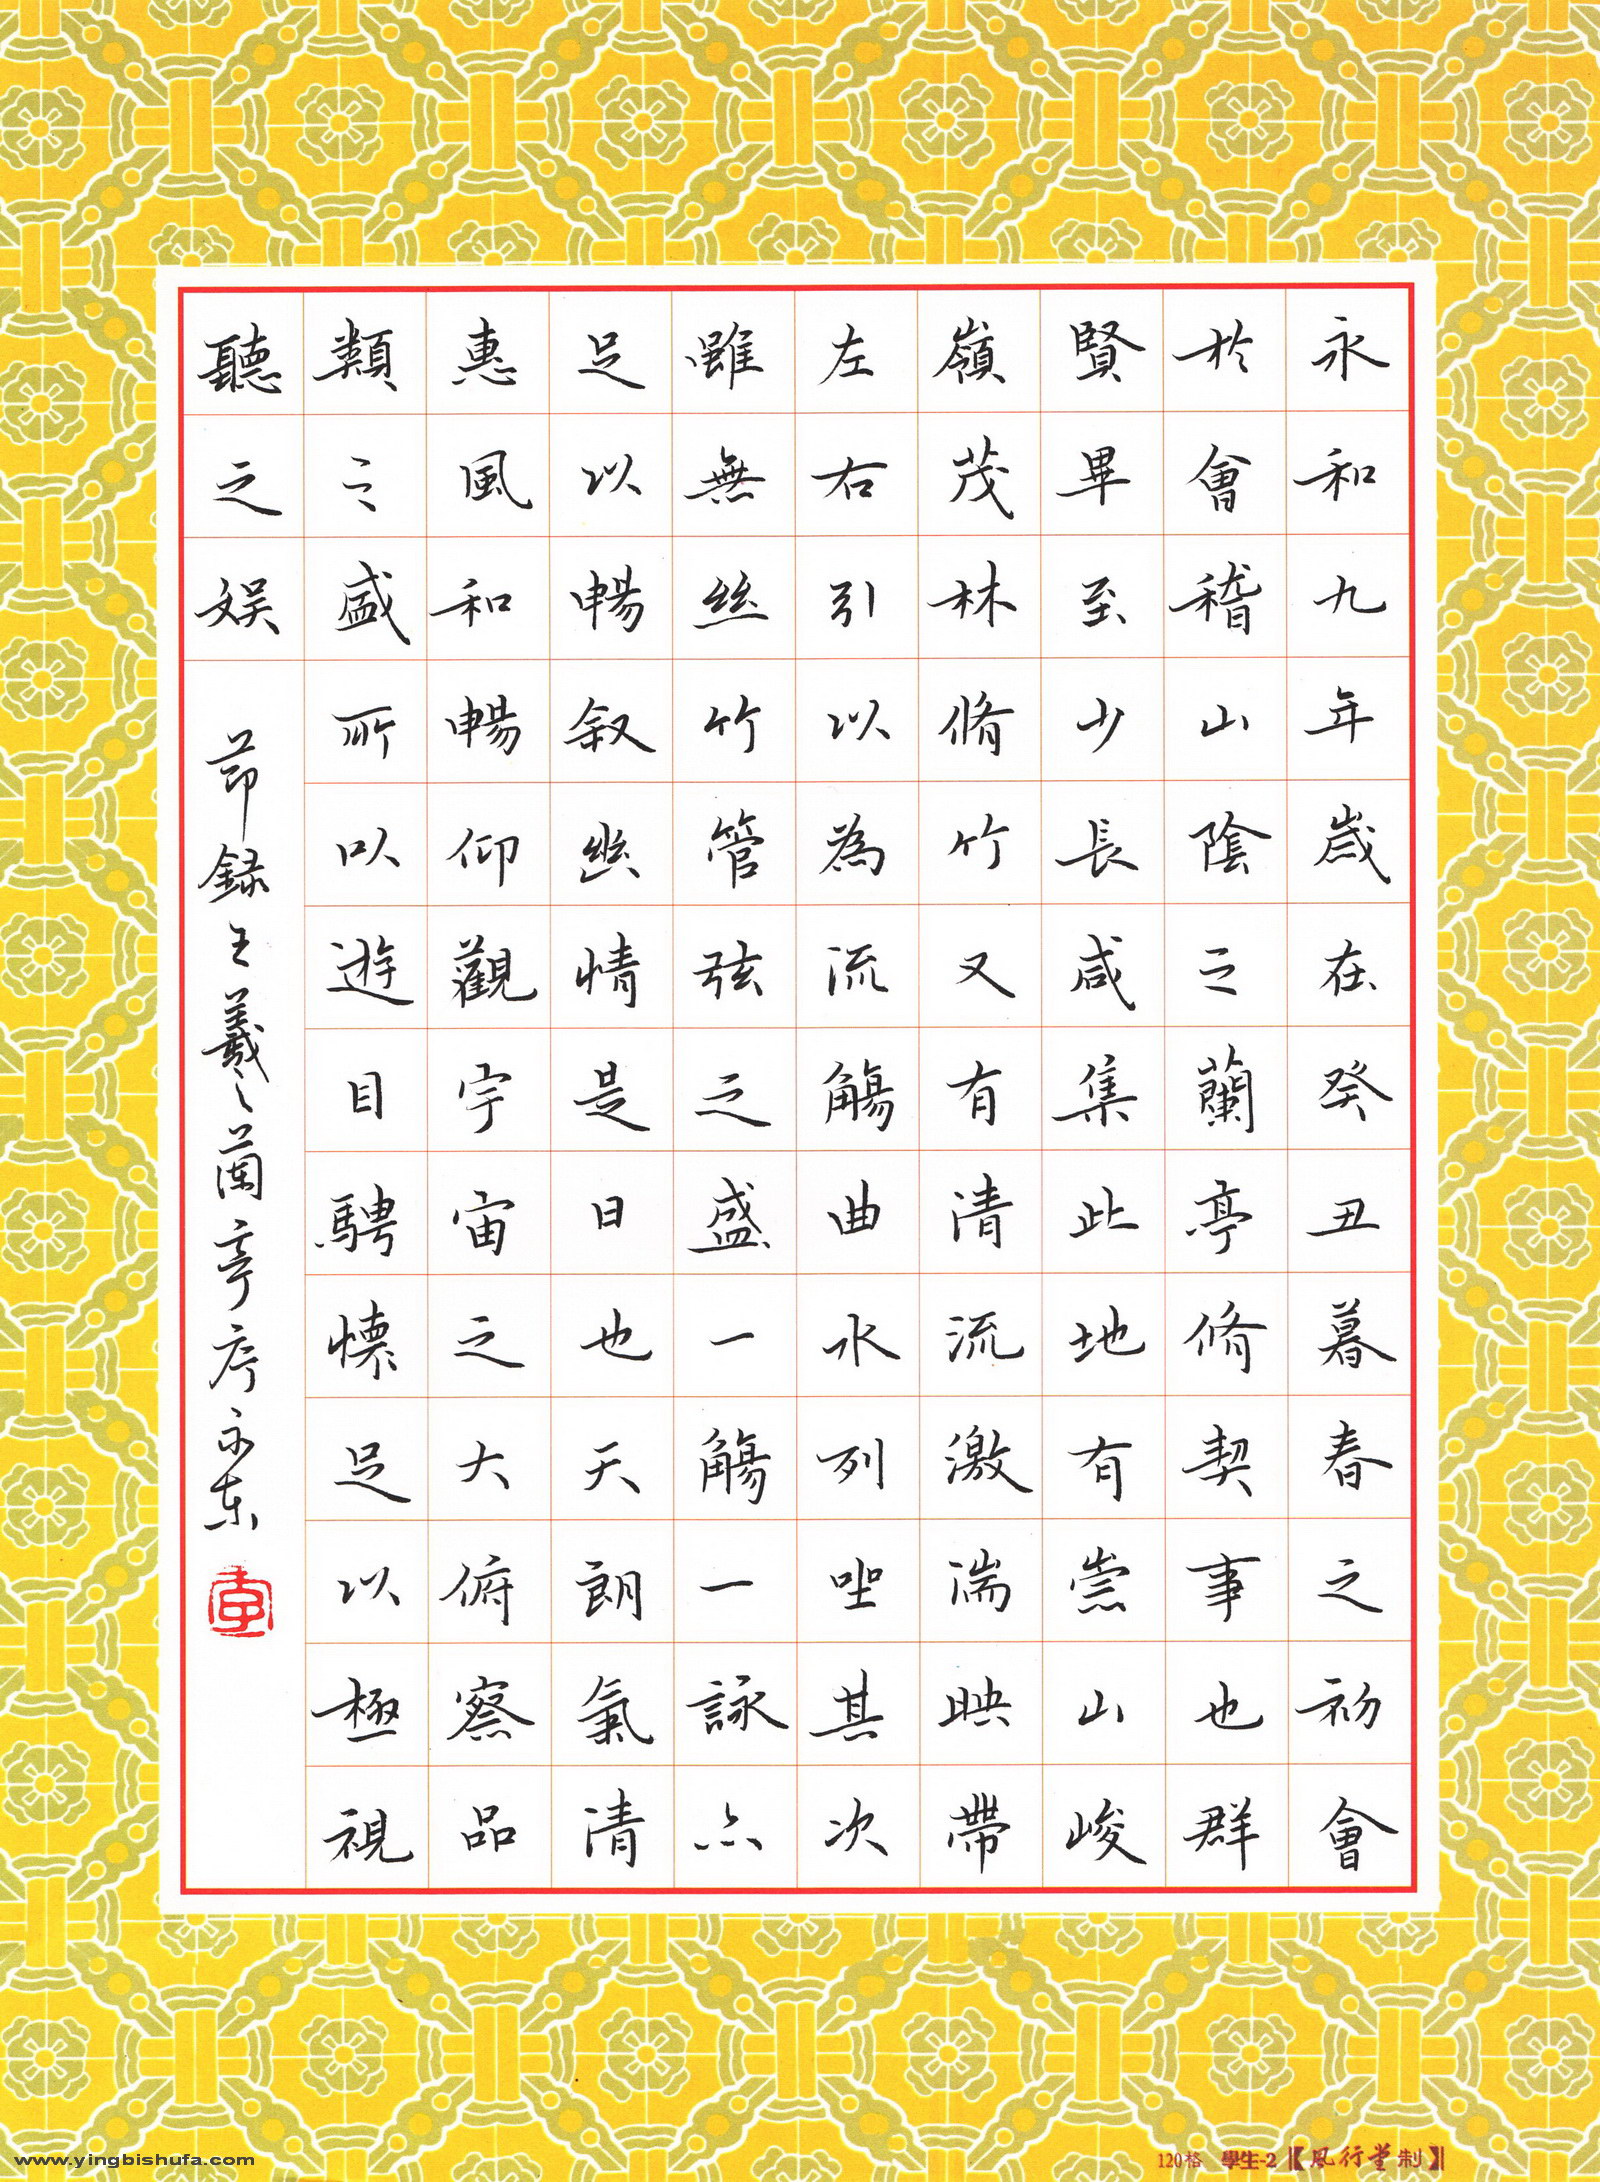 永和九年歲在癸丑暮春之初會
於會稽山陰之蘭亭脩契事也群
賢畢至少長咸集此地有崇山峻
嶺茂林脩竹又有清流激湍映帶
左右引以為流觴曲水列坐其次
雖無絲竹管弦之盛一觴一詠亦
足以暢叙幽情是日也天朗氣清
惠風和暢仰觀宇宙之大俯察品
類之盛所以遊目騁懷足以極視
聽之娛
節録王羲之蘭亭序
www.yingbishufa.com
120格 學生-2【風行堂制】